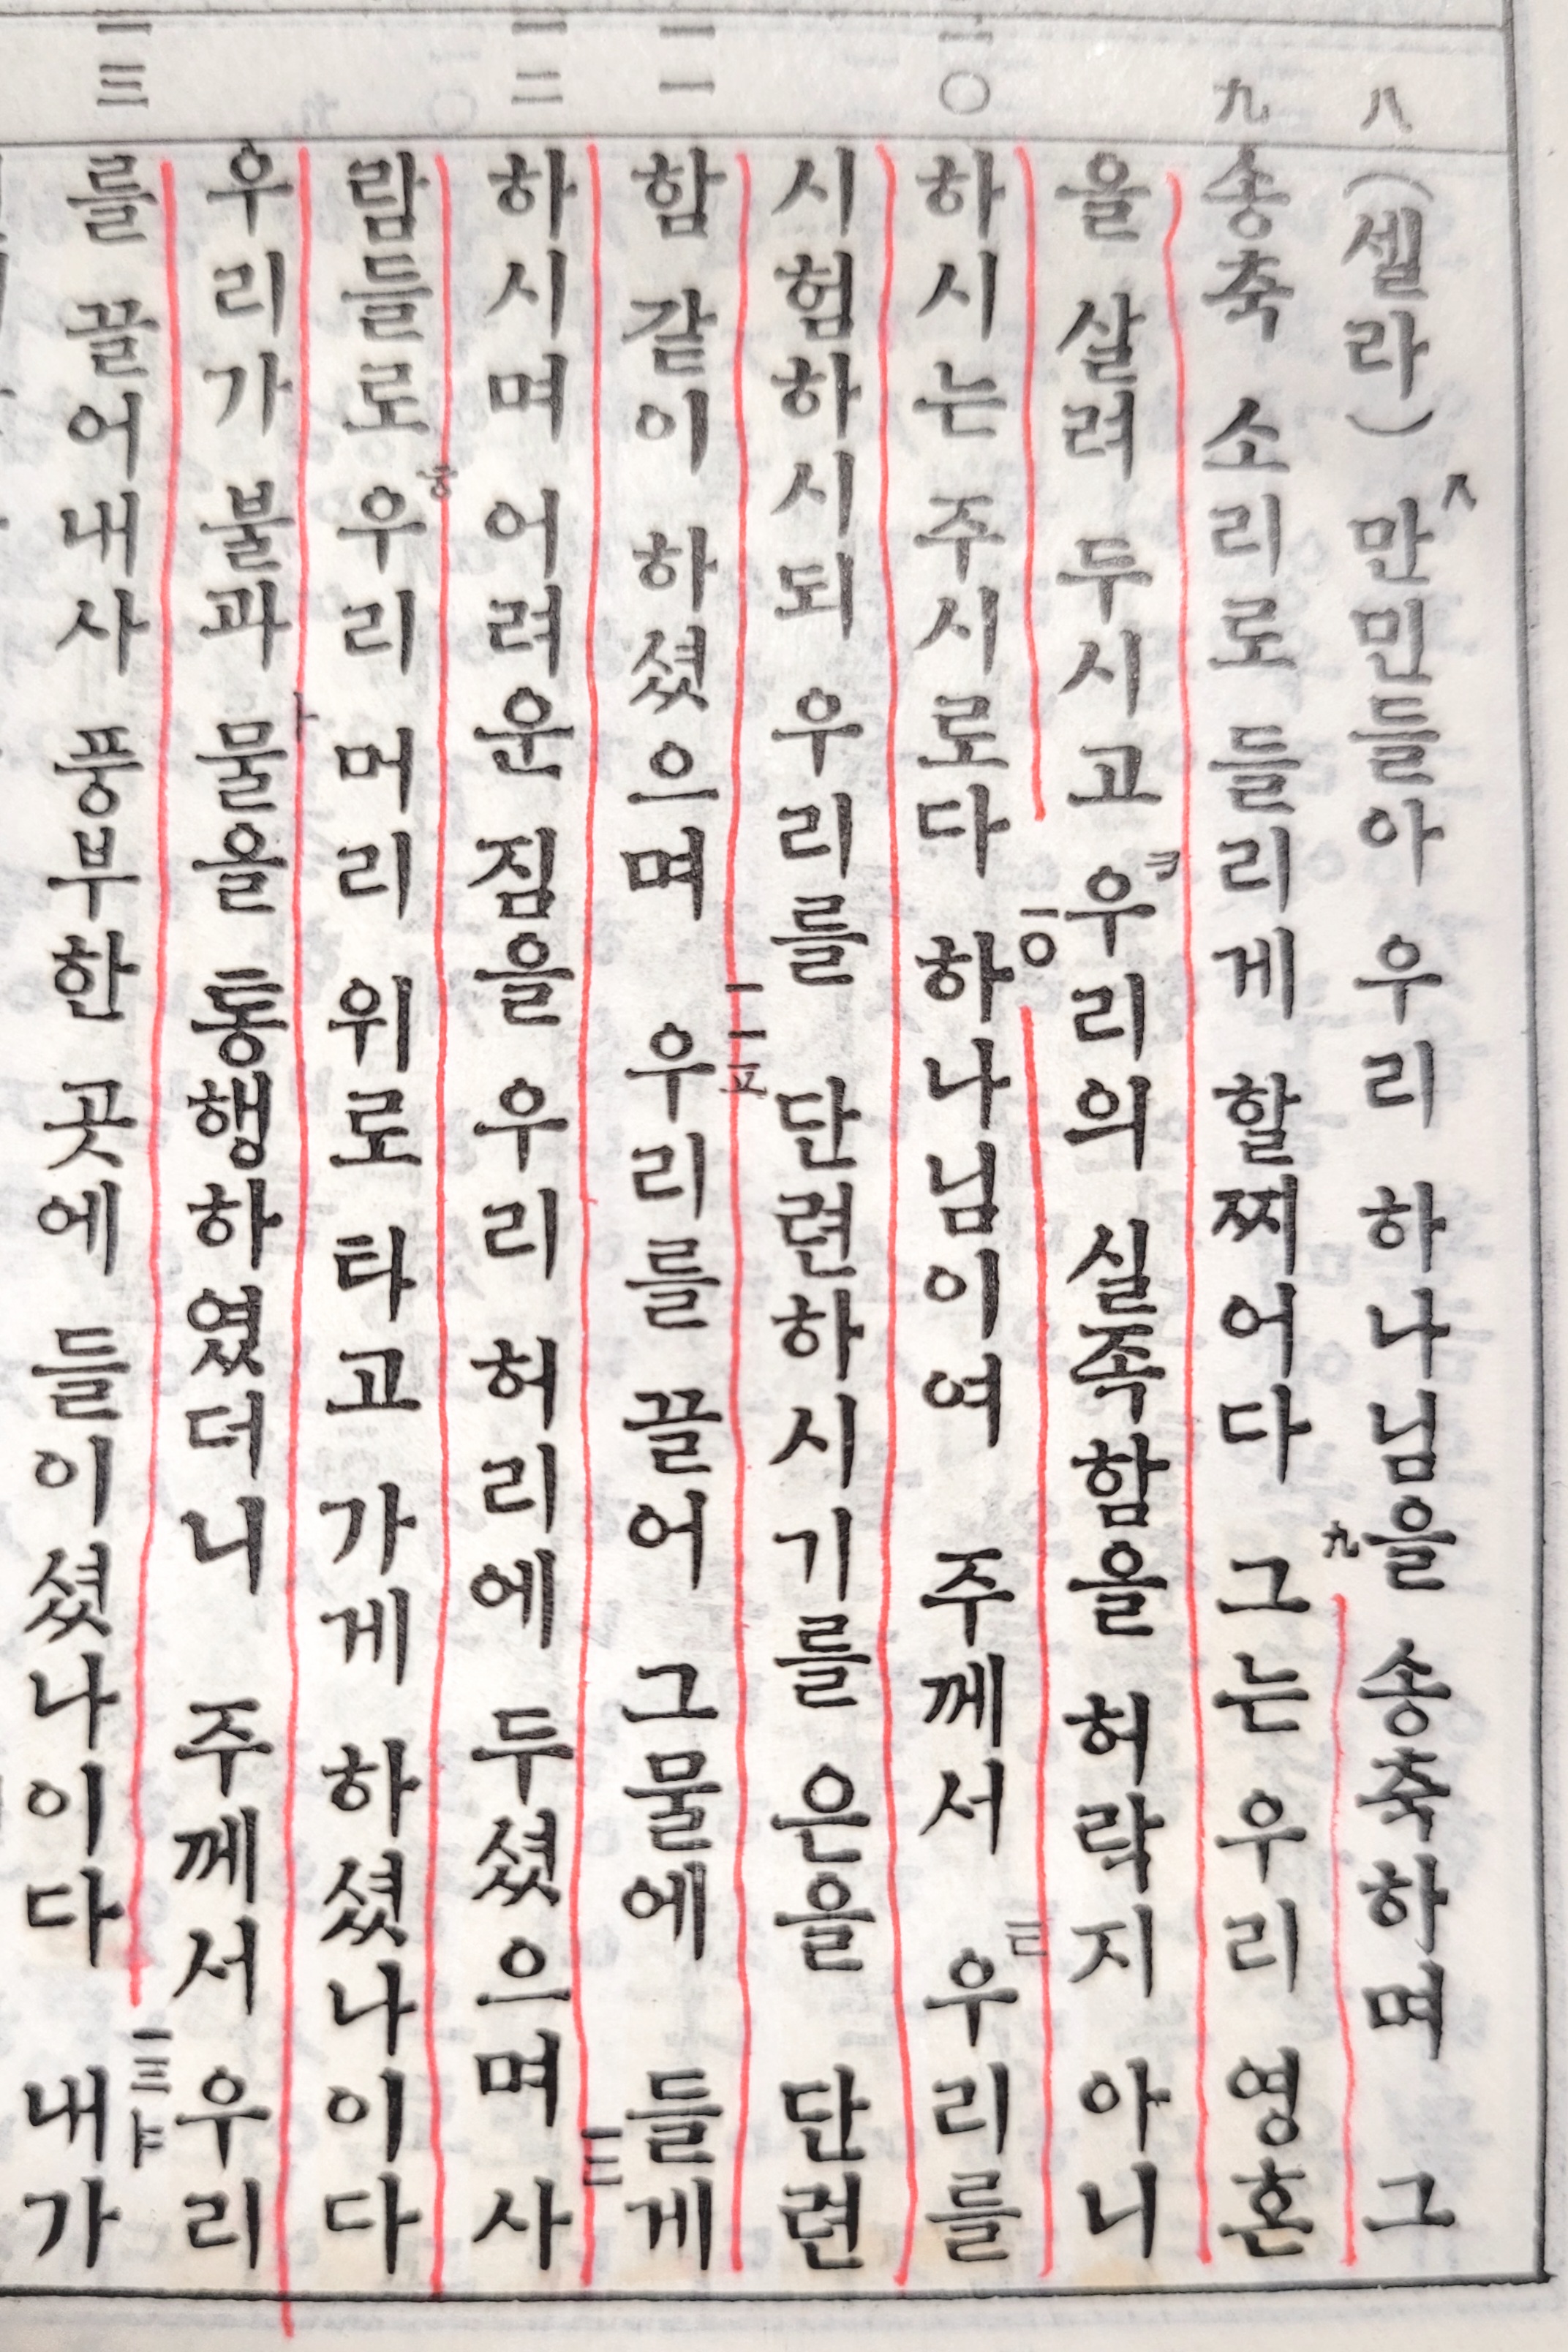 八 (셀라) 만민들아 우리 하나님을 송축하며 그
九 송축 소리로 들리게 할찌어다 九 그는 우리 영혼
을 살려 두시고 우리의 실족함을 허락지 아니
一〇 하시는 주시로다 一〇 하나님이여 주께서 우리를
시험하시되 우리를 단련하시기를 은을 단련
一一 함 같이 하셨으며 一一 우리를 끌어 그물에 들게
一二 하시며 어려운 짐을 우리 허리에 두셨으며 一二 사
람들로 우리 머리 위로 타고 가게 하셨나이다
우리가 불과 물을 통행하였더니 주께서 우리
一三 를 끌어내사 풍부한 곳에 들이셨나이다 一三 내가